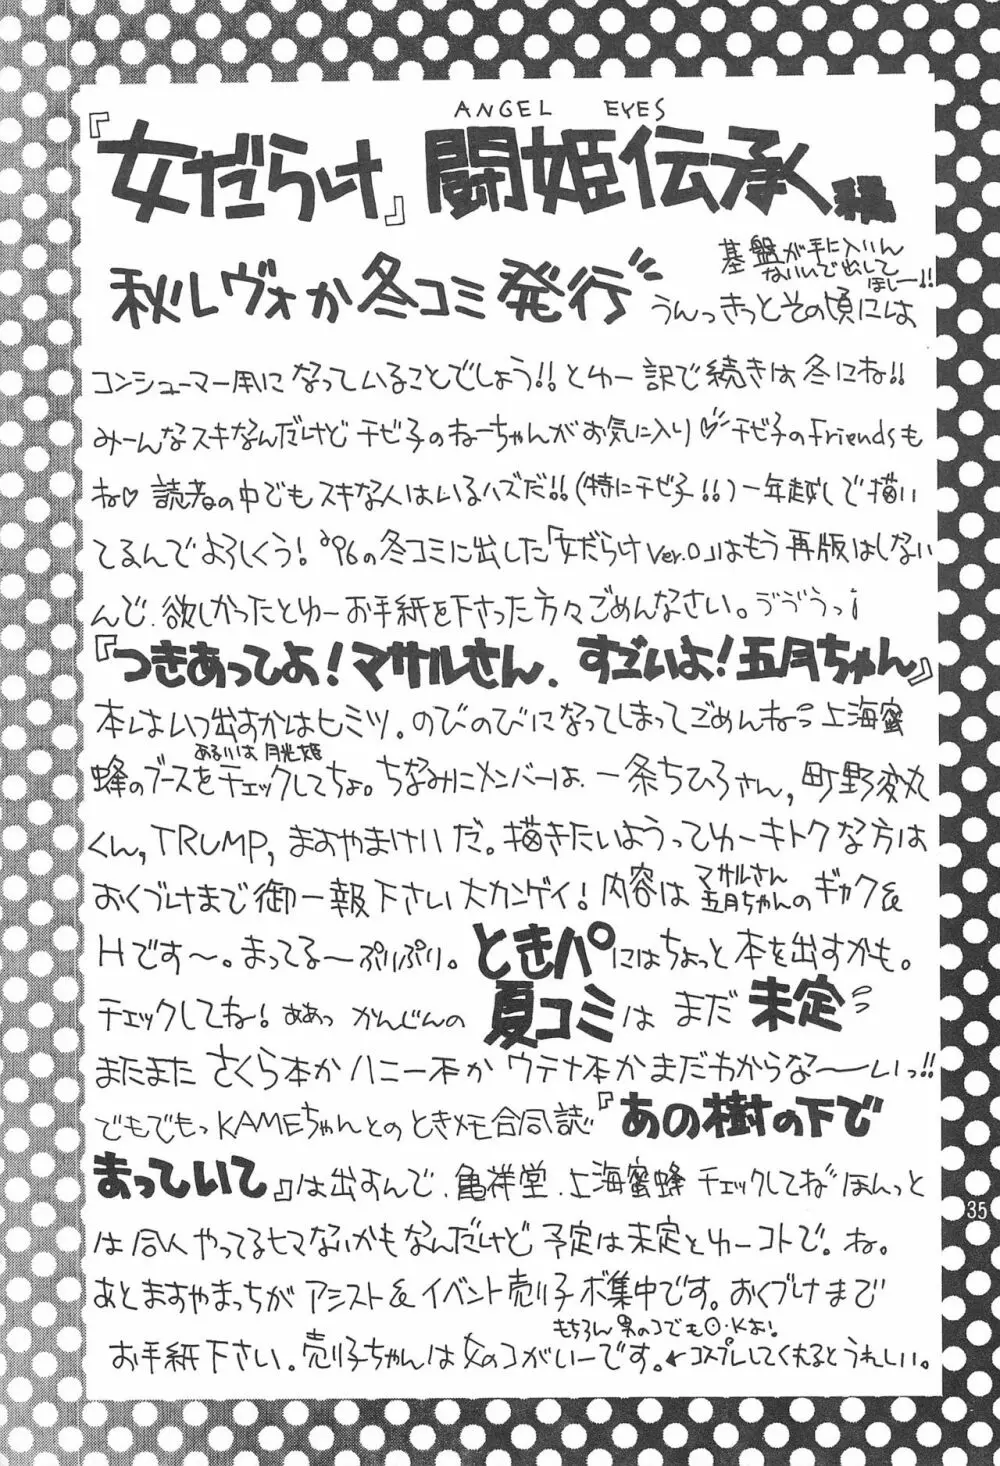 ANGEL EYES
『女だらけ』闘姫伝承編
秋レヴォか冬コミ発行
基盤が手に入いん
ないんで出して
ほしー!!
うんっきっとその頃には
コンシューマー用になっていることでしょう!!とゆー訳で続きは冬にね!!
みーんなスキなんだけどチビ子のねーちゃんがお気に入り♡チビ子のFriendsも
ね♡読者の中でもスキな人はいるハズだ!!(特にチビ子!!)一年越しで描い
てるんでよろしくう!'96の冬コミに出した「女だらけver.0」はもう再版はしない
んで、欲しかったとゆーお手紙を下さった方々ごめんなさい。
『つきあってよ!マサルさん、すごいよ!五月ちゃん』
本はいつ出すかはヒミツ。のびのびになってしまってごめんね 上海蜜
あるいは月光姫
蜂のブースをチェックしてちょ。ちなみにメンバーは、一条ちひろさん,町野変丸
くん,TRUMP,ますやまけいだ。描きたいようってゆーキトクな方は
おくづけまで御一報下さい大カンゲイ!内容はマサルさん
五月ちゃんのギャク&
Hです〜。まってる〜ぷりぷり。ときパにはちょっと本を出すかも。
チェックしてね!ああっかんじんの夏コミはまだ未定
またまたさくら本かハニー本かウテナ本かまだわからな〜いっ!!
でもでもっKAMEちゃんとのときメモ合同誌『あの樹の下で
まっていて』は出すんで、亀祥堂、上海蜜蜂チェックしてね ほんっと
は同人やってるヒマないかもなんだけど予定は未定とゆーコトで。ね。
あとますやまっちがアシスト&イベント売り子ボ集中です。おくづけまで
もちろん男のコでもO・Kよ!
お手紙下さい。売り子ちゃんは女のコがいーです。←コスプレしてくれるとうれしい。
35